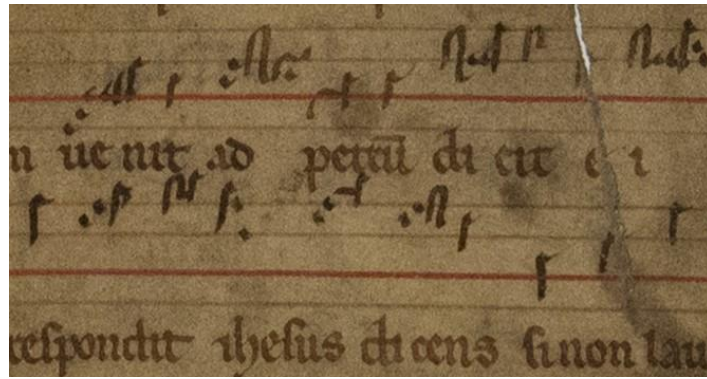 uenit ad petrū dicit ei
respondit ihesus dicens si non lau